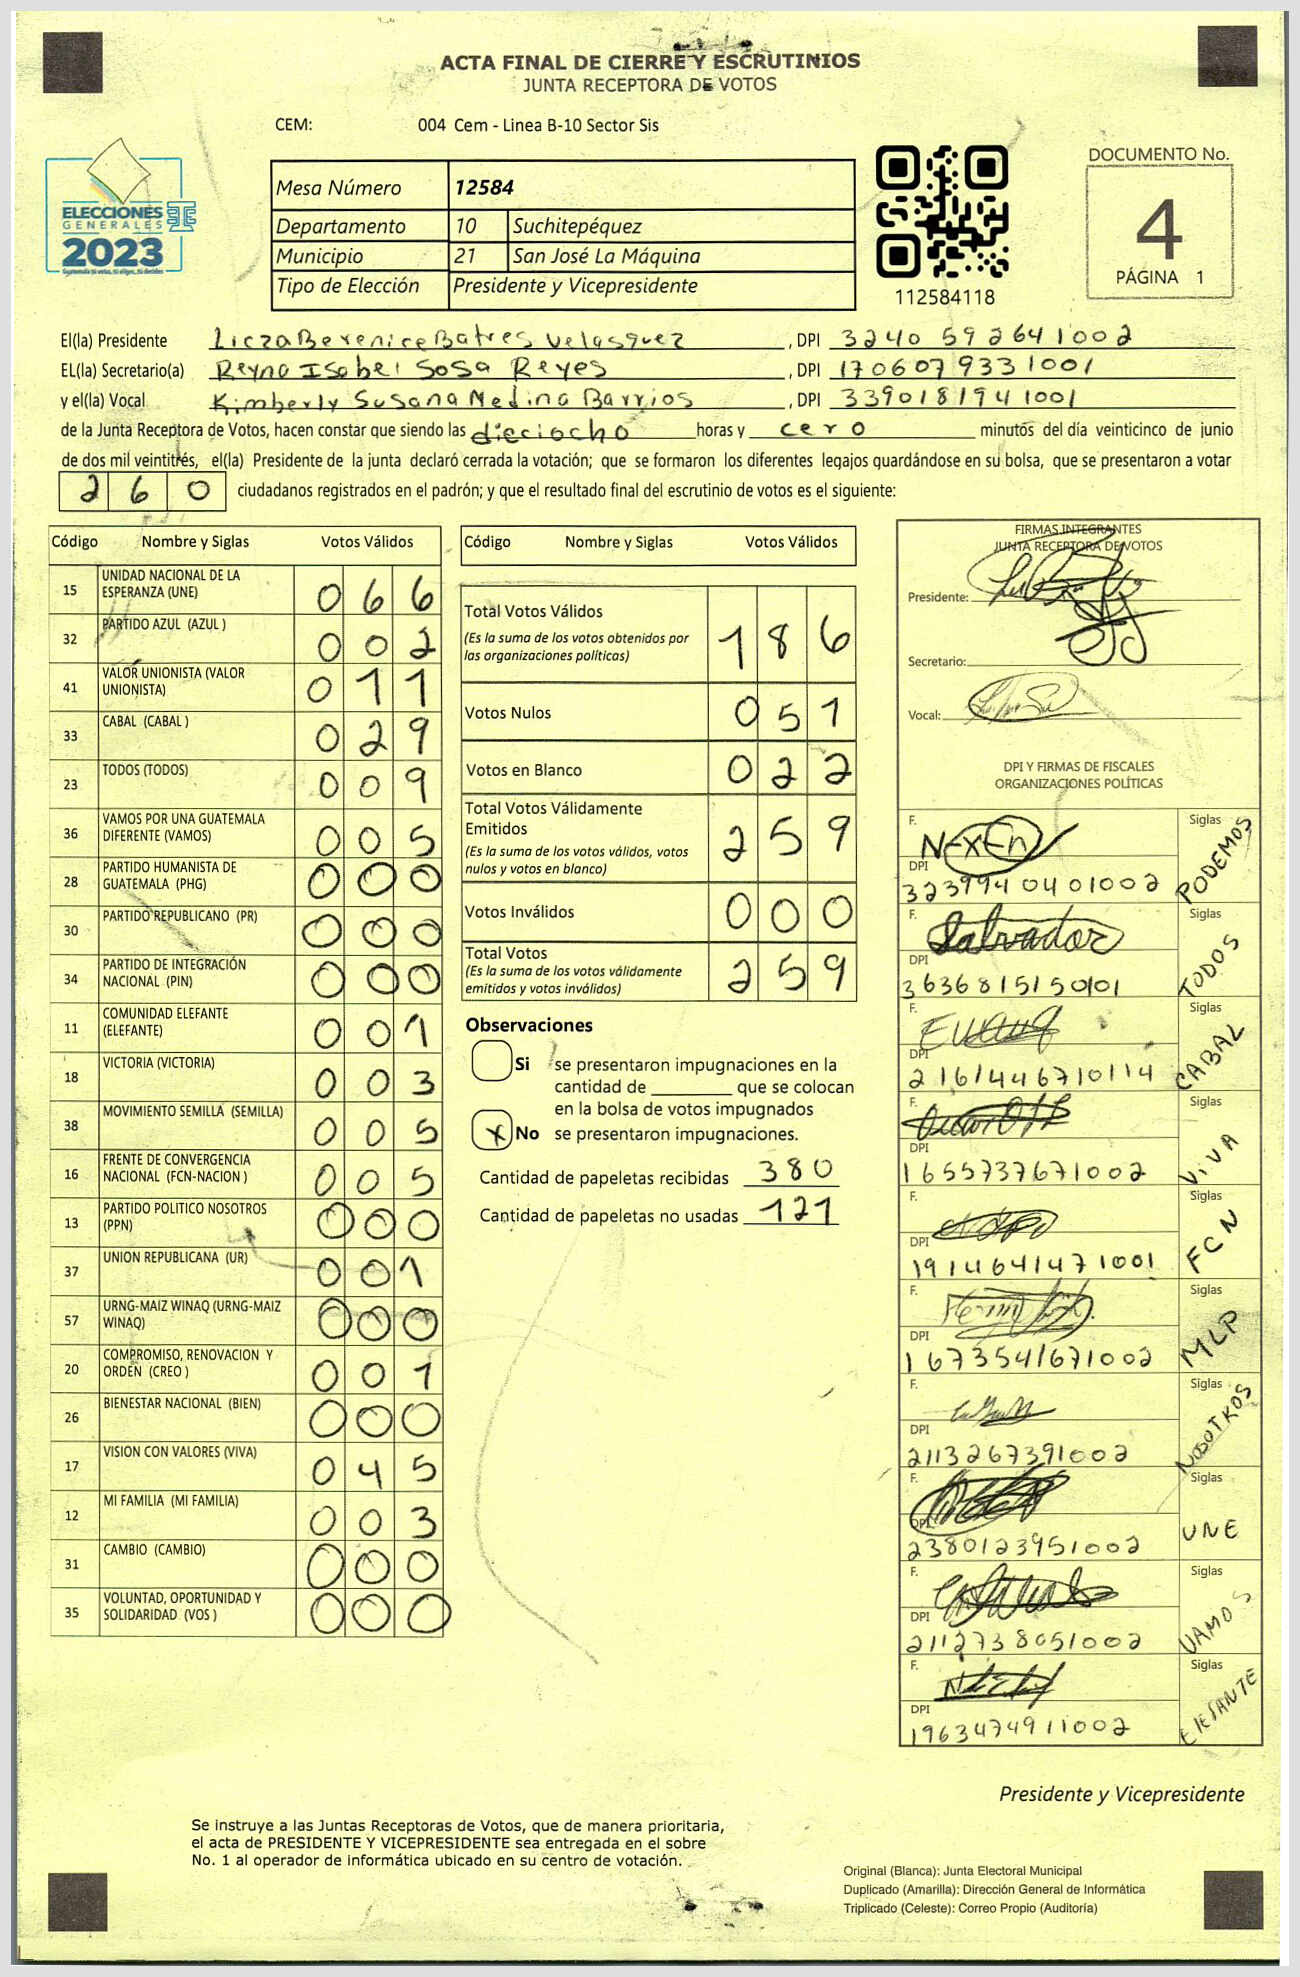 ACTA FINAL DE CIERRE Y ESCRUTINIOS
JUNTA RECEPTORA DE VOTOS
CEM: 004 Cem - Linea B-10 Sector Sis
ELECCIONES
GENERALES
2023
Guatemala tú votas, tú eliges, tú decides
Mesa Número 12584
Departamento 10 Suchitepéquez
Municipio 21 San José La Máquina
Tipo de Elección Presidente y Vicepresidente
112584118
DOCUMENTO No.
4
PÁGINA 1
El(la) Presidente Licza Berenice Batres Velasquez, DPI 3240 592641002
EL(la) Secretario(a) Reyna Isabel Sosa Reyes, DPI 1706079331001
y el(la) Vocal Kimberly Susana Medina Barrios, DPI 3390181941001
de la Junta Receptora de Votos, hacen constar que siendo las dieciocho horas y cero minutos del día veinticinco de junio
de dos mil veintitrés, el(la) Presidente de la junta declaró cerrada la votación; que se formaron los diferentes legajos guardándose en su bolsa, que se presentaron a votar
260 ciudadanos registrados en el padrón; y que el resultado final del escrutinio de votos es el siguiente:
Código Nombre y Siglas Votos Válidos
15 UNIDAD NACIONAL DE LA ESPERANZA (UNE) 066
32 PARTIDO AZUL (AZUL ) 002
41 VALOR UNIONISTA (VALOR UNIONISTA) 011
33 CABAL (CABAL ) 029
23 TODOS (TODOS) 009
36 VAMOS POR UNA GUATEMALA DIFERENTE (VAMOS) 005
28 PARTIDO HUMANISTA DE GUATEMALA (PHG) 000
30 PARTIDO REPUBLICANO (PR) 000
34 PARTIDO DE INTEGRACIÓN NACIONAL (PIN) 000
11 COMUNIDAD ELEFANTE (ELEFANTE) 001
18 VICTORIA (VICTORIA) 003
38 MOVIMIENTO SEMILLA (SEMILLA) 005
16 FRENTE DE CONVERGENCIA NACIONAL (FCN-NACION ) 005
13 PARTIDO POLITICO NOSOTROS (PPN) 000
37 UNION REPUBLICANA (UR) 001
57 URNG-MAIZ WINAQ (URNG-MAIZ WINAQ) 000
20 COMPROMISO, RENOVACION Y ORDEN (CREO ) 001
26 BIENESTAR NACIONAL (BIEN) 000
17 VISION CON VALORES (VIVA) 045
12 MI FAMILIA (MI FAMILIA) 003
31 CAMBIO (CAMBIO) 000
35 VOLUNTAD, OPORTUNIDAD Y SOLIDARIDAD (VOS ) 000
Código Nombre y Siglas Votos Válidos
Total Votos Válidos 186
(Es la suma de los votos obtenidos por
las organizaciones políticas)
Votos Nulos 051
Votos en Blanco 022
Total Votos Válidamente
Emitidos 259
(Es la suma de los votos válidos, votos
nulos y votos en blanco)
Votos Inválidos 000
Total Votos 259
(Es la suma de los votos válidamente
emitidos y votos inválidos)
Observaciones
Si se presentaron impugnaciones en la
cantidad de ________ que se colocan
en la bolsa de votos impugnados
X No se presentaron impugnaciones.
Cantidad de papeletas recibidas 380
Cantidad de papeletas no usadas 121
FIRMAS INTEGRANTES
JUNTA RECEPTORA DE VOTOS
Presidente:
Secretario:
Vocal:
DPI Y FIRMAS DE FISCALES
ORGANIZACIONES POLÍTICAS
F. Siglas PODEMOS
DPI 3239940401002
F. Salvador Siglas TODOS
DPI 3636815150101
F. Siglas CABAL
DPI 2161446710114
F. Siglas VIVA
DPI 1655737671002
F. Siglas FCN
DPI 1914641471001
F. Siglas MLP
DPI 1673541671002
F. Siglas NOSOTROS
DPI 2113267391002
F. Siglas UNE
DPI 2380123951002
F. Siglas VAMOS
DPI 2112738051002
F. Siglas ElEFANTE
DPI 1963474911002
Presidente y Vicepresidente
Se instruye a las Juntas Receptoras de Votos, que de manera prioritaria,
el acta de PRESIDENTE Y VICEPRESIDENTE sea entregada en el sobre
No. 1 al operador de informática ubicado en su centro de votación.
Original (Blanca): Junta Electoral Municipal
Duplicado (Amarilla): Dirección General de Informática
Triplicado (Celeste): Correo Propio (Auditoría)